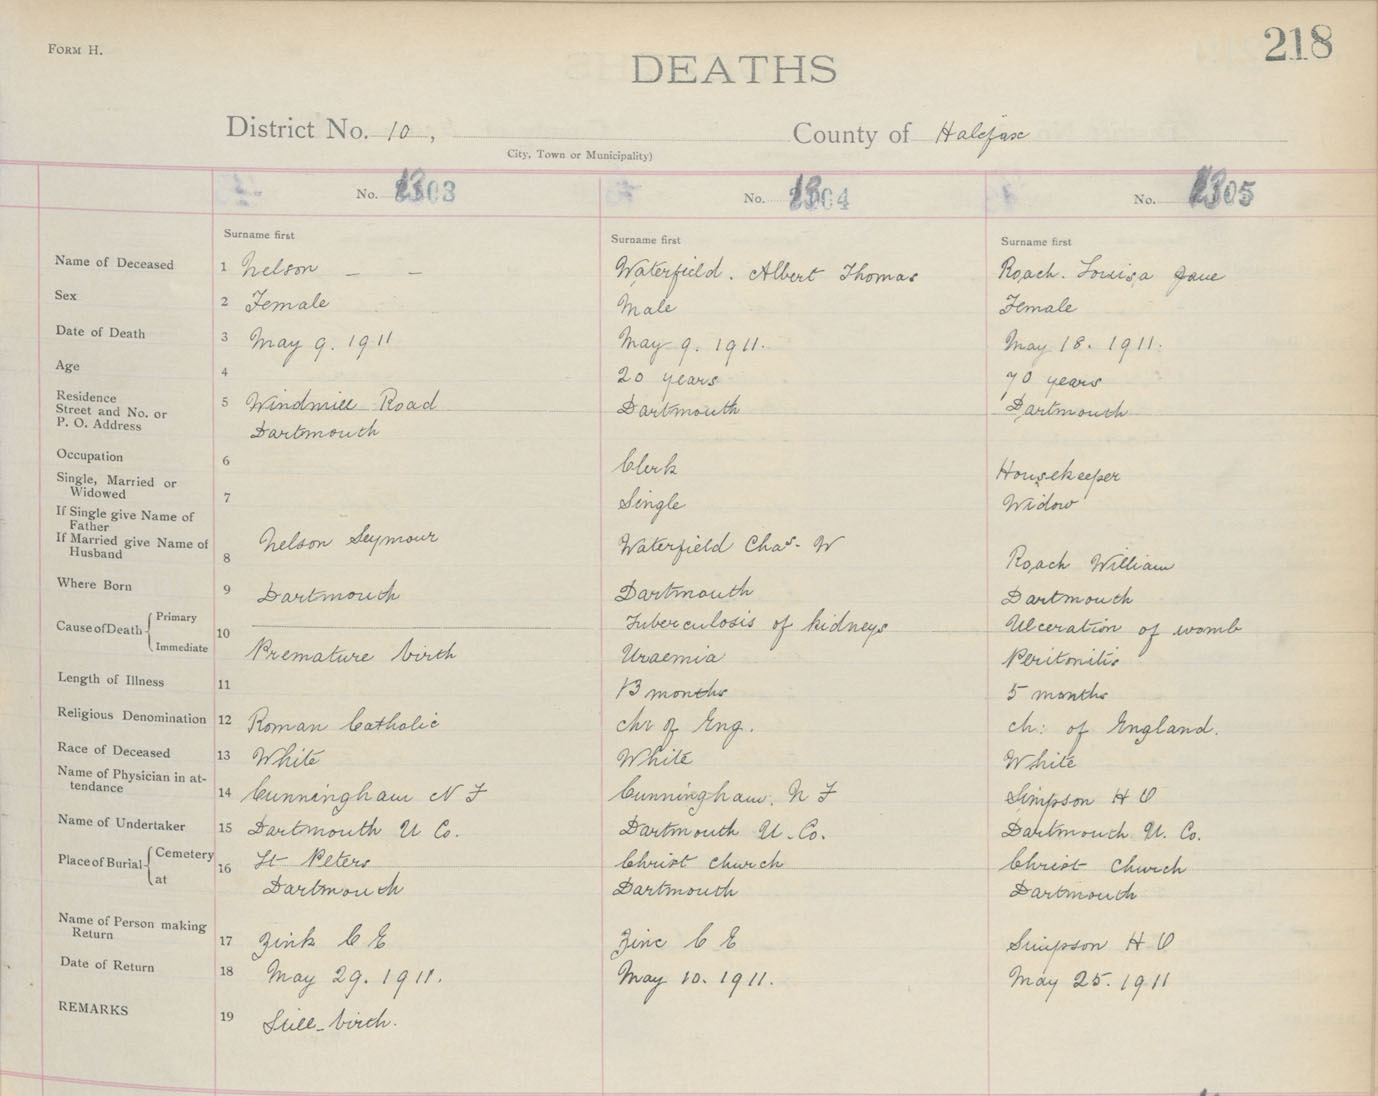 FORM H.
218
DEATHS
District No. 10, County of Halifax
City, Town or Municipality)
No. 1303 No. 1304 No. 1305
Surname first Surname first Surname first
Name of Deceased 1 Nelson — — Waterfield. Albert Thomas Roach. Louisa Jane
Sex 2 Female Male Female
Date of Death 3 May 9. 1911 May 9. 1911. May 18. 1911.
Age 4 20 years 70 years
Residence Street and No. or P. O. Address 5 Windmill Road Dartmouth Dartmouth
Dartmouth
Occupation 6 Clerk Housekeeper
Single, Married or Widowed 7 Single Widow
If Single give Name of Father
If Married give Name of Husband 8 Nelson Seymour Waterfield Chas. W Roach William
Where Born 9 Dartmouth Dartmouth Dartmouth
Cause of Death Primary 10 Tuberculosis of kidneys Ulceration of womb
Immediate Premature birth Uraemia Peritonitis
Length of Illness 11 13 months 5 months
Religious Denomination 12 Roman Catholic Chr of Eng. Ch: of England.
Race of Deceased 13 White White White
Name of Physician in attendance 14 Cunningham N F Cunningham. N F Simpson H O
Name of Undertaker 15 Dartmouth U Co. Dartmouth U. Co. Dartmouth U. Co.
Place of Burial Cemetery 16 St Peters Christ Church Christ Church
at Dartmouth Dartmouth Dartmouth
Name of Person making Return 17 Zink C E Zinc C E Simpson H O
Date of Return 18 May 29. 1911. May 10. 1911. May 25. 1911
REMARKS 19 Still-birth.